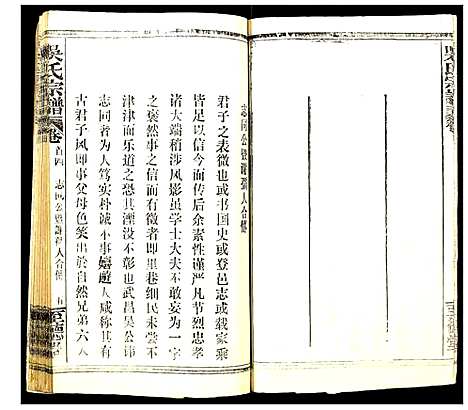 志同公暨謝孺人合傳
君子之表微也或书国史或登邑志或载家乘
皆足以信今而传后余素性谨严凡节烈忠孝
诸大端稍涉风影虽学士大夫不敢妄为一字
之褒然事之信而有徵者即里巷细民未尝不
津津而乐道之恐其湮没不彰也武昌吴公讳
志同者为人笃实朴诚小事嬉戏人咸称其有
古君子风即事父母色笑出於自然兄弟六人
吳氏宗譜
卷首四
志同公暨謝孺人合傳
五
至德堂